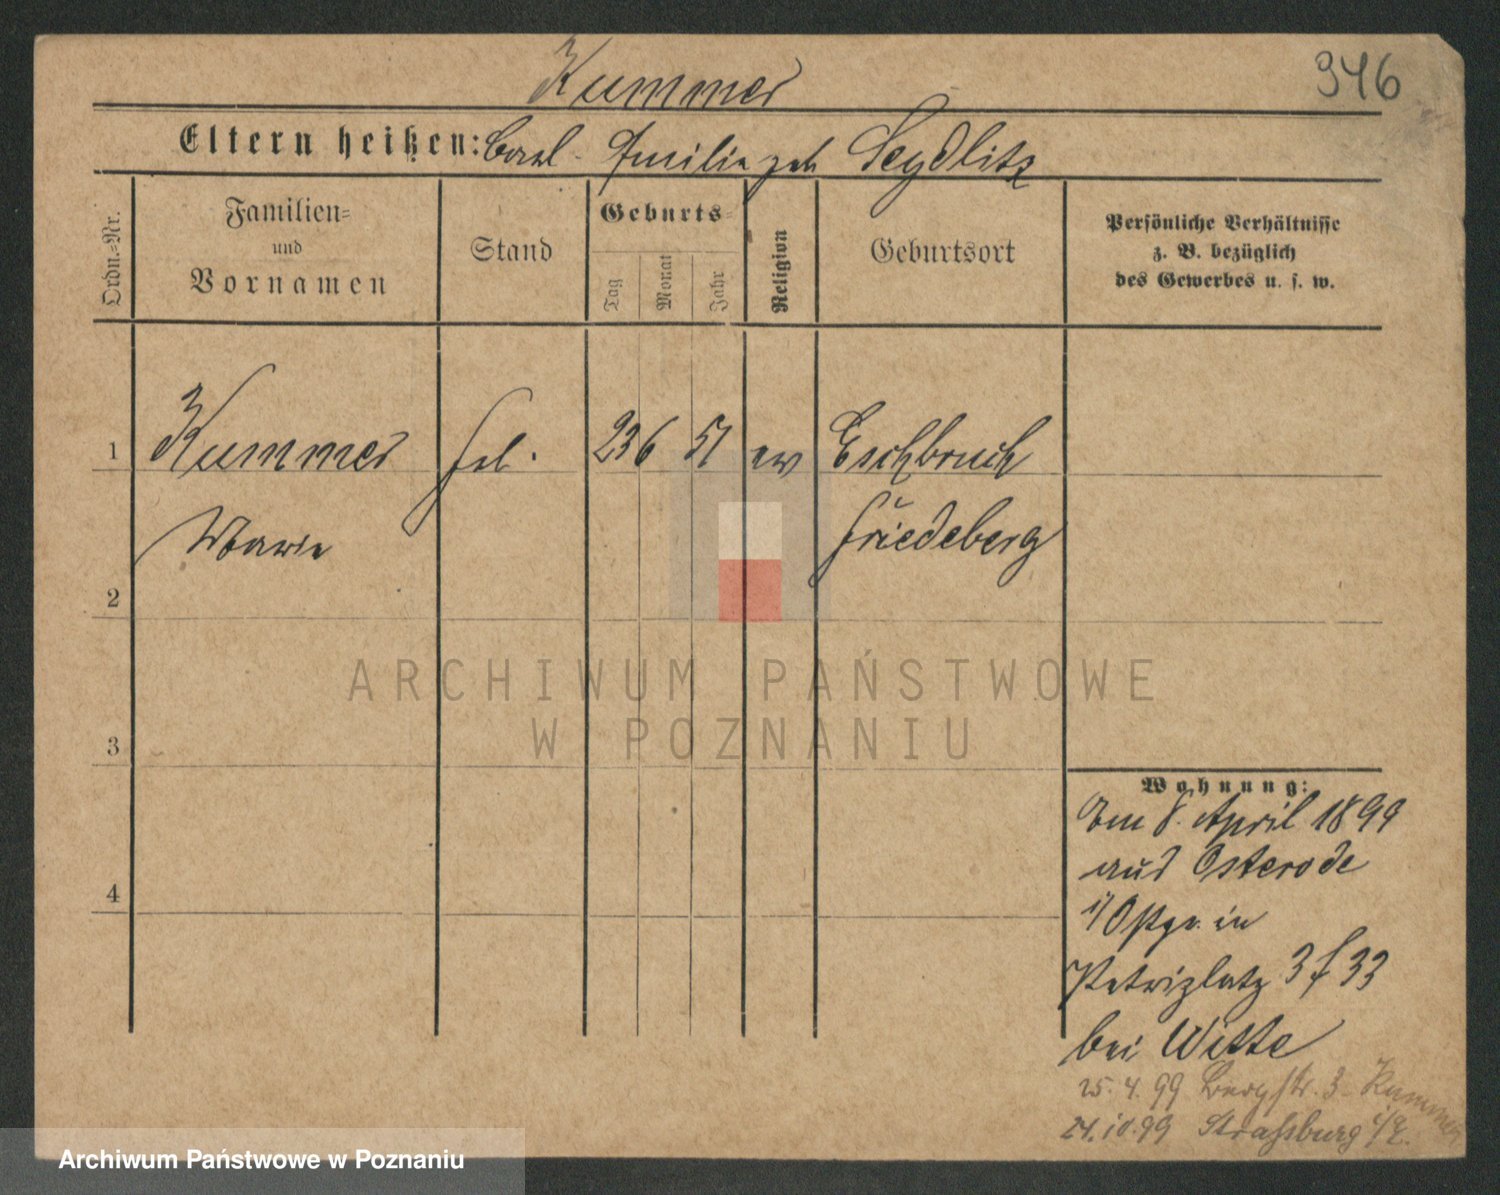 946
Kummer
Eltern heißen: Carl Emilie geb Seydlitz
Ordn.=Nr.
Familien=
und
Vornamen
Stand
Geburts=
Tag
Monat
Jahr
Religion
Geburtsort
Persönliche Verhältnisse
z. B. bezüglich
des Gewerbes u. s. w.
1 Kummer frl. 23 6 51 ev Eschbruch
Marie Friedeberg
2
3
4
Wohnung:
Am 8. April 1899
aus Osterode
i/Ostpr. in
Petriplatz 3 f 33
bei Witte
25.4.99 Bergstr. 3 Kummer
24.10.99 Straßburg i/E.
ARCHIWUM PAŃSTWOWE
W POZNANIU
Archiwum Państwowe w Poznaniu